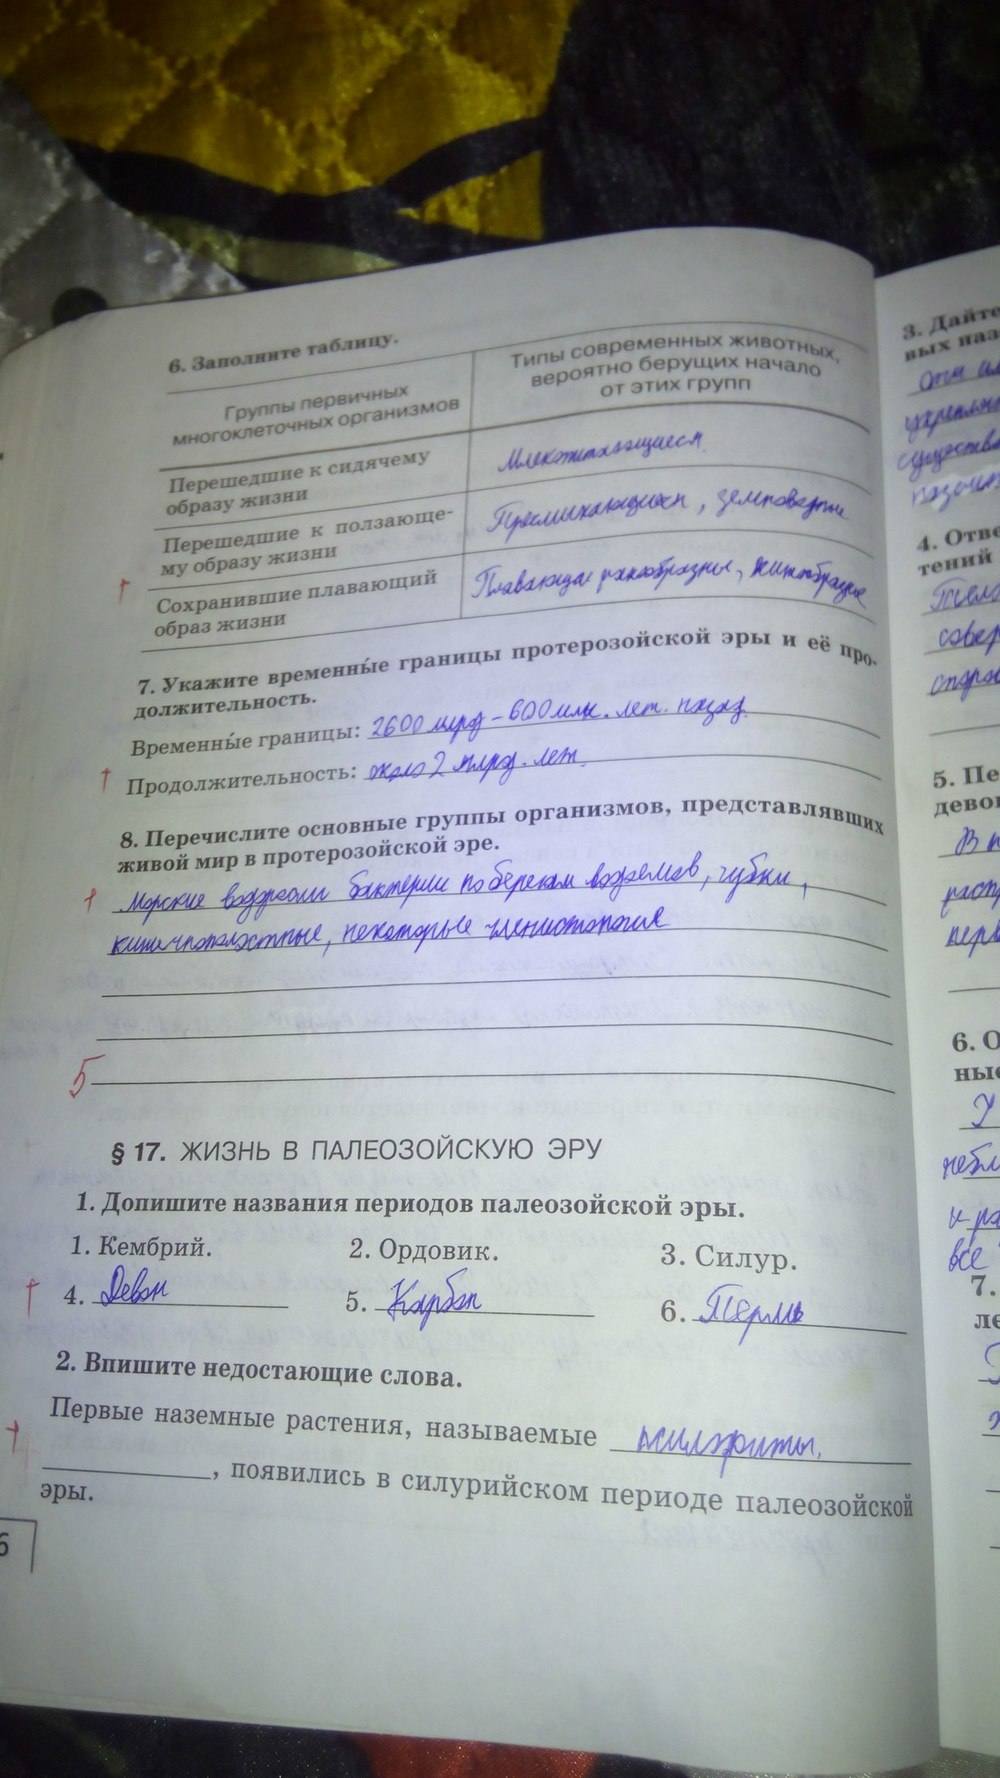 6. Заполните таблицу.
Группы первичных
многоклеточных организмов
Типы современных животных,
вероятно берущих начало
от этих групп
Перешедшие к сидячему
образу жизни
Млекопитающиеся
Перешедшие к ползающе-
му образу жизни
Пресмыкающиеся, земноводные
Сохранившие плавающий
образ жизни
Плавающие ракообразные, китообразные
7. Укажите временны́е границы протерозойской эры и её про-
должительность.
Временны́е границы: 2600 млрд – 600 млн. лет. назад
Продолжительность: около 2 млрд. лет.
8. Перечислите основные группы организмов, представлявших
живой мир в протерозойской эре.
Морские водоросли бактерии по берегам водоемов, губки,
кишечнополостные, некоторые членистоногие
5
§ 17. ЖИЗНЬ В ПАЛЕОЗОЙСКУЮ ЭРУ
1. Допишите названия периодов палеозойской эры.
1. Кембрий. 2. Ордовик. 3. Силур.
4. Девон 5. Карбон 6. Пермь
2. Впишите недостающие слова.
Первые наземные растения, называемые псилофиты.
, появились в силурийском периоде палеозойской
эры.
6
3. Дайте
вых наз
Они
укрепля
существ
4. Отве
тений
Тело
совер
5. Пе
девон
В п
расп
перв
6. О
ные
У
небл
и ра
все
7.
ле